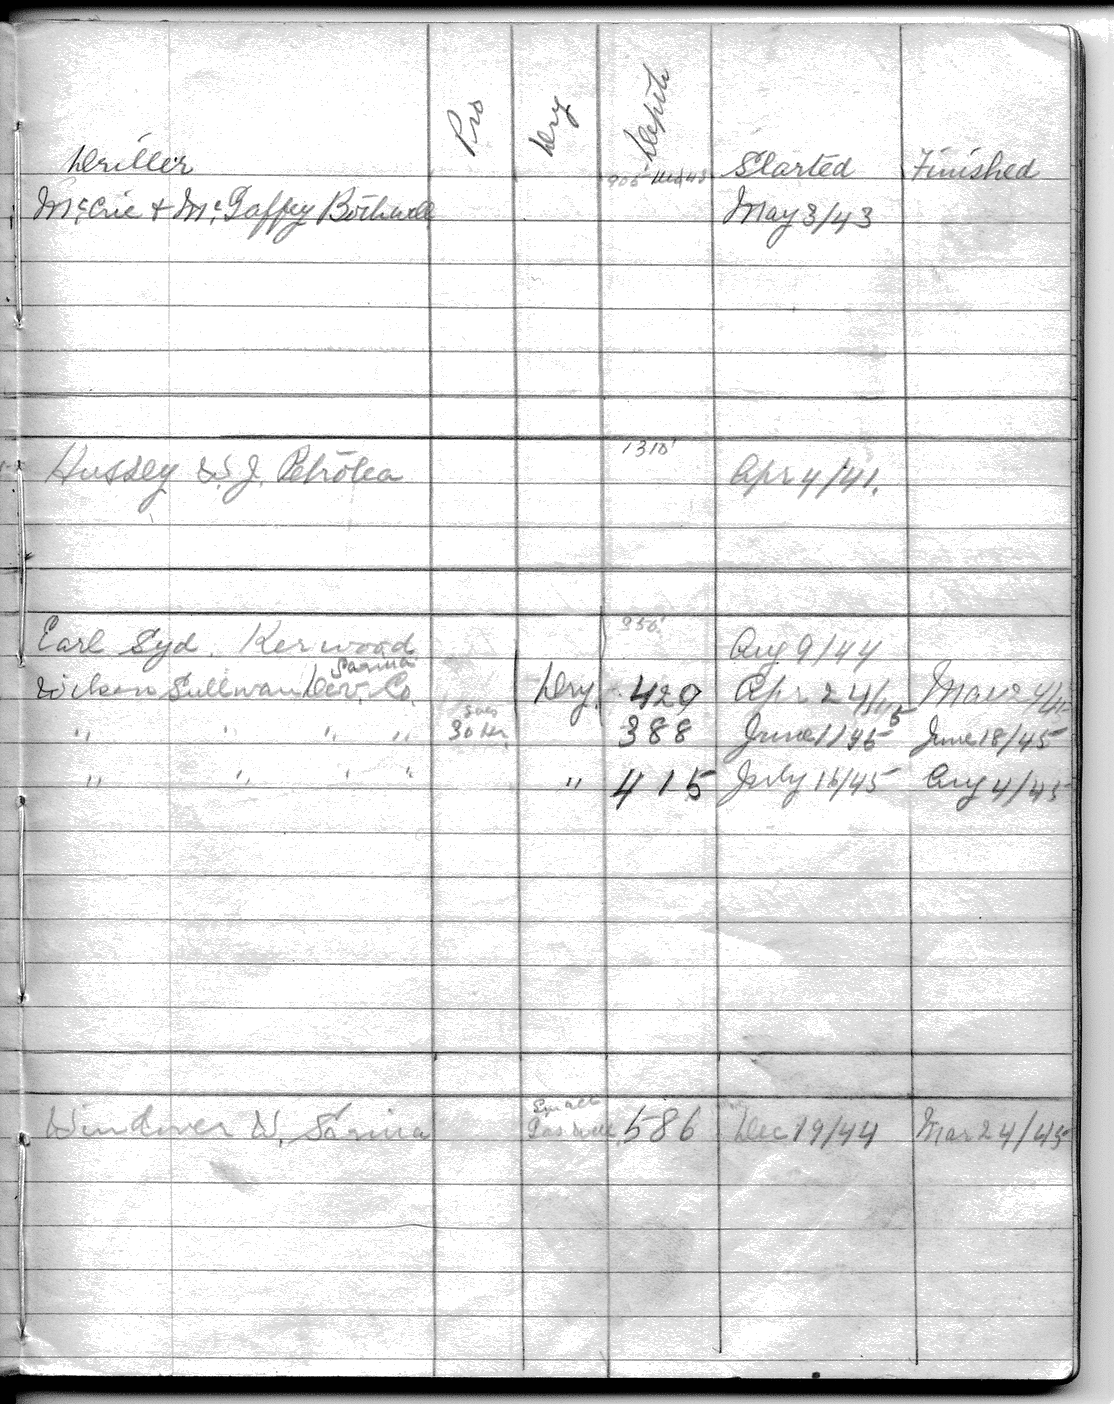 Driller Pro Dry Depth Started Finished
McCrie & McGaffey Bothwell 905 May 3/43
Hussey W. J. Petrolea 1310' Apr 4/41.
Earl Syd. Kerwood 950' Aug 9/44
Sarnia
Sullivan Dev. Co. Dry. 429 Apr 24/45 Mar 24/45
Gas
" " " " 30 Hr. 388 June 11/45 June 18/45
" " " " " 415 July 16/45 Aug 4/45
Small
Windover W. Sarnia Gas well 586 Dec 19/44 Mar 24/45